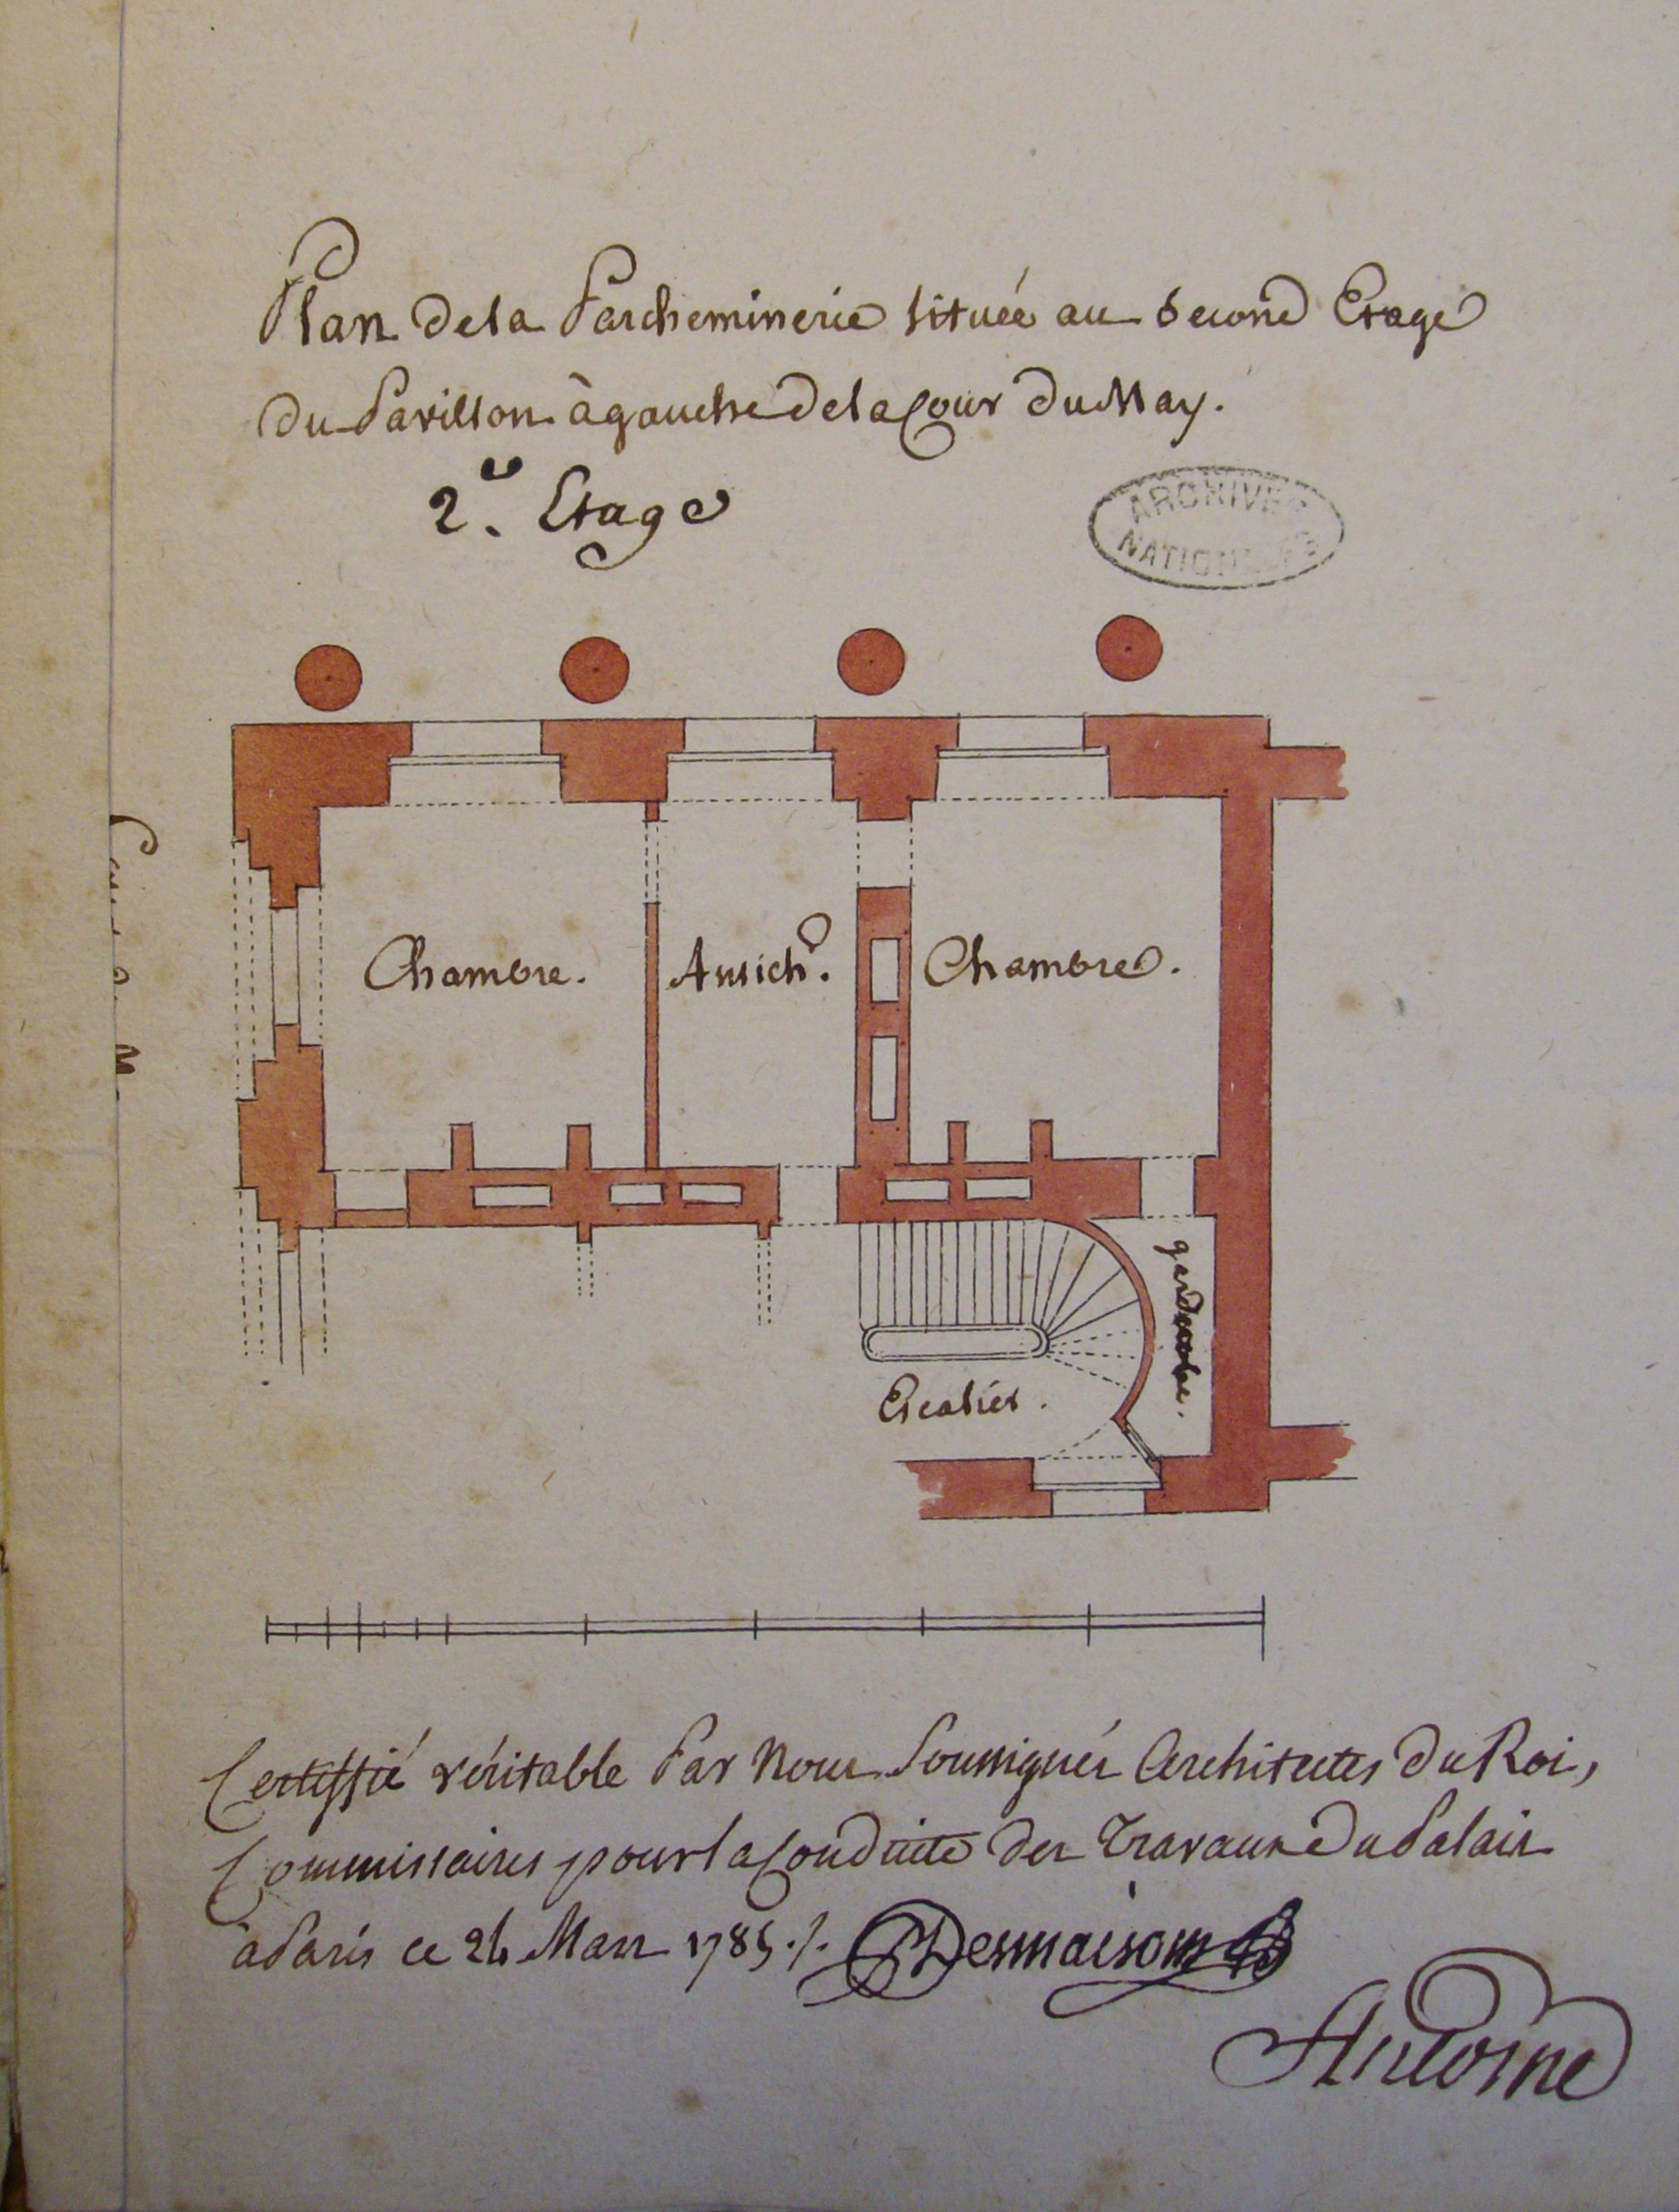 Plan de la Parcheminerie située au Second Etage
du Pavillon à gauche de la Cour du May.
2e. Etage
ARCHIVES
NATIONALES
Chambre.
Antich.e
Chambre.
garderobe.
Escalier.
Certiffié véritable Par Nous Soussignés Architectes du Roi,
Commissaires pour la Conduite des Travaux du Palais
à Paris ce 24 Mars 1785 ./.
Desmaisons
Antoine